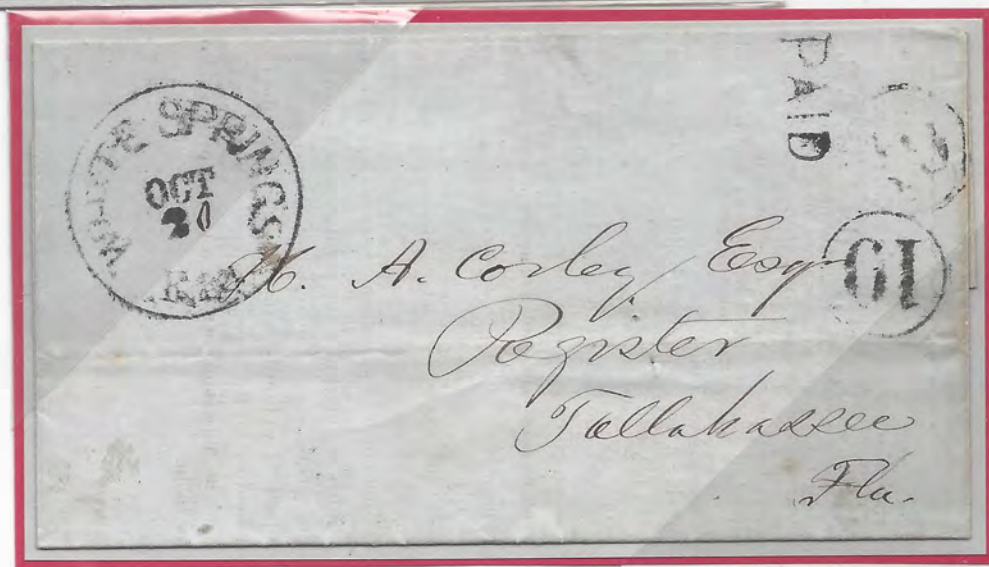 WHITE SPRINGS
OCT
20
Fla
PAID
10
H. A. Corley Esqr
Register
Tallahassee
Fla.